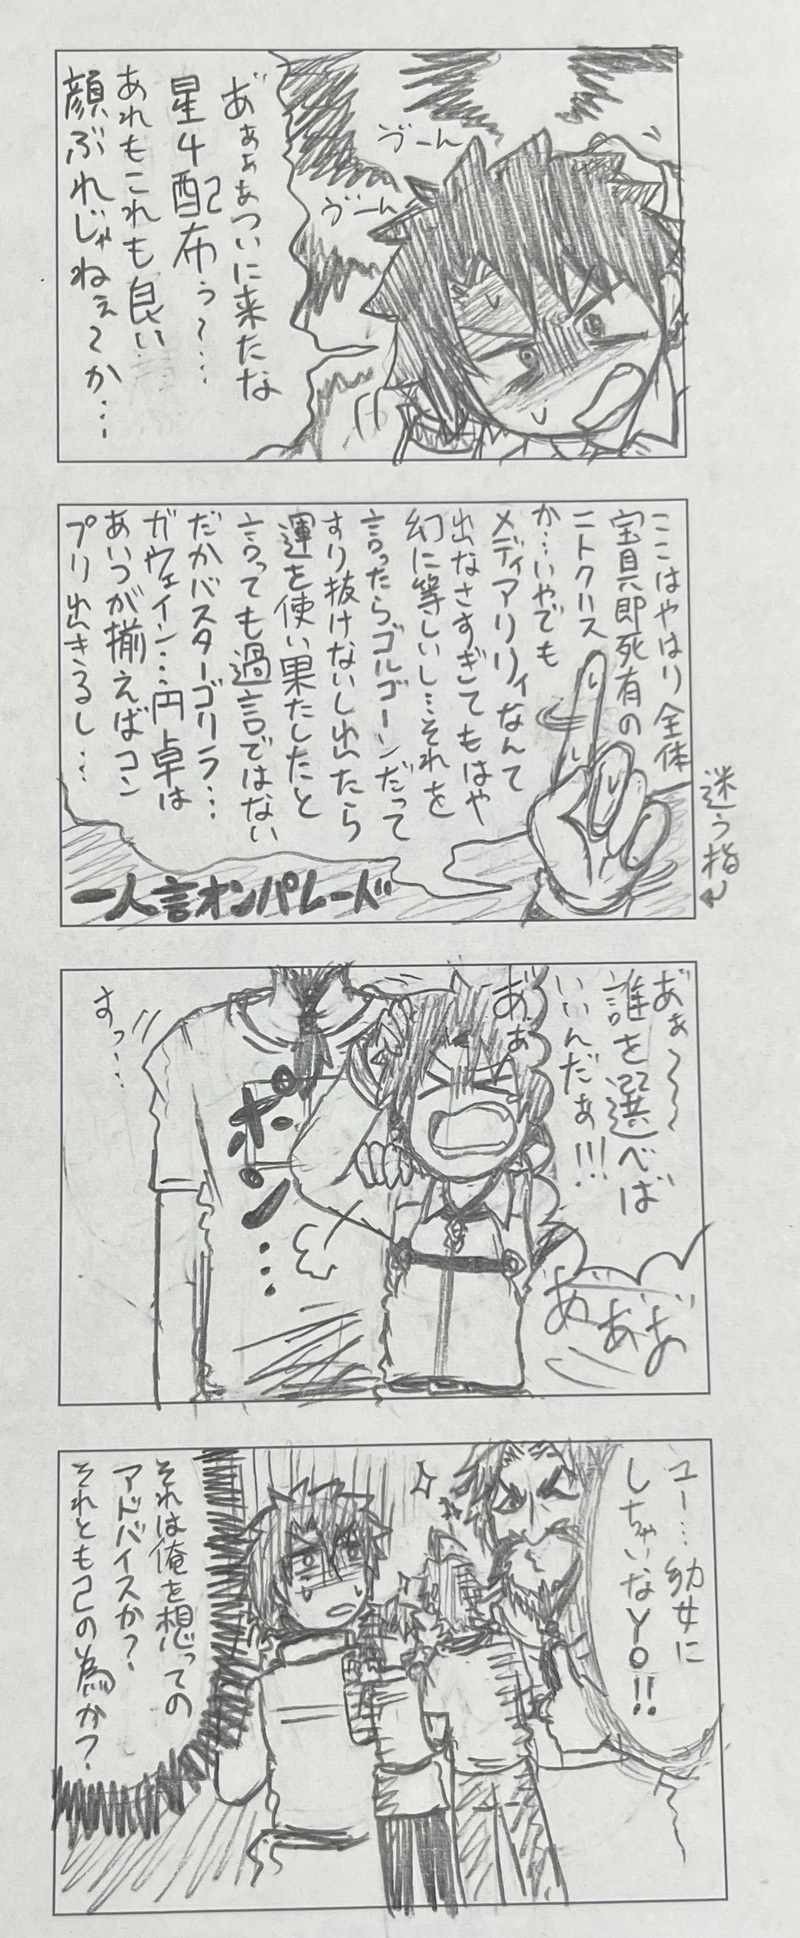 あ゛ぁぁぁついに来たな
星4配布ぅ〜…
あれもこれも良い
顔ぶれじゃねぇ〜か…
ゔーん
ゔーん
ここはやはり全体
宝具即死有の
ニトクリス
か…いやでも
メディアリリィなんて
出なさすぎてもはや
幻に等しいし…それを
言ったらゴルゴーンだって
すり抜けないし出たら
運を使い果たしたと
言っても過言ではない
だがバスターゴリラ…
ガウェイン…円卓は
あいつが揃えばコン
プリ出きるし…
迷う指
一人言オンパレード
あ゛ぁ〜〜
誰を選べば
いいんだぁ!!!
あ゛ぁ
あ゛あ゛お゛
ポン…
すっ…
ユー…幼女に
しちゃいなYO!!
それは俺を想っての
アドバイスか?
それとも己の為か?